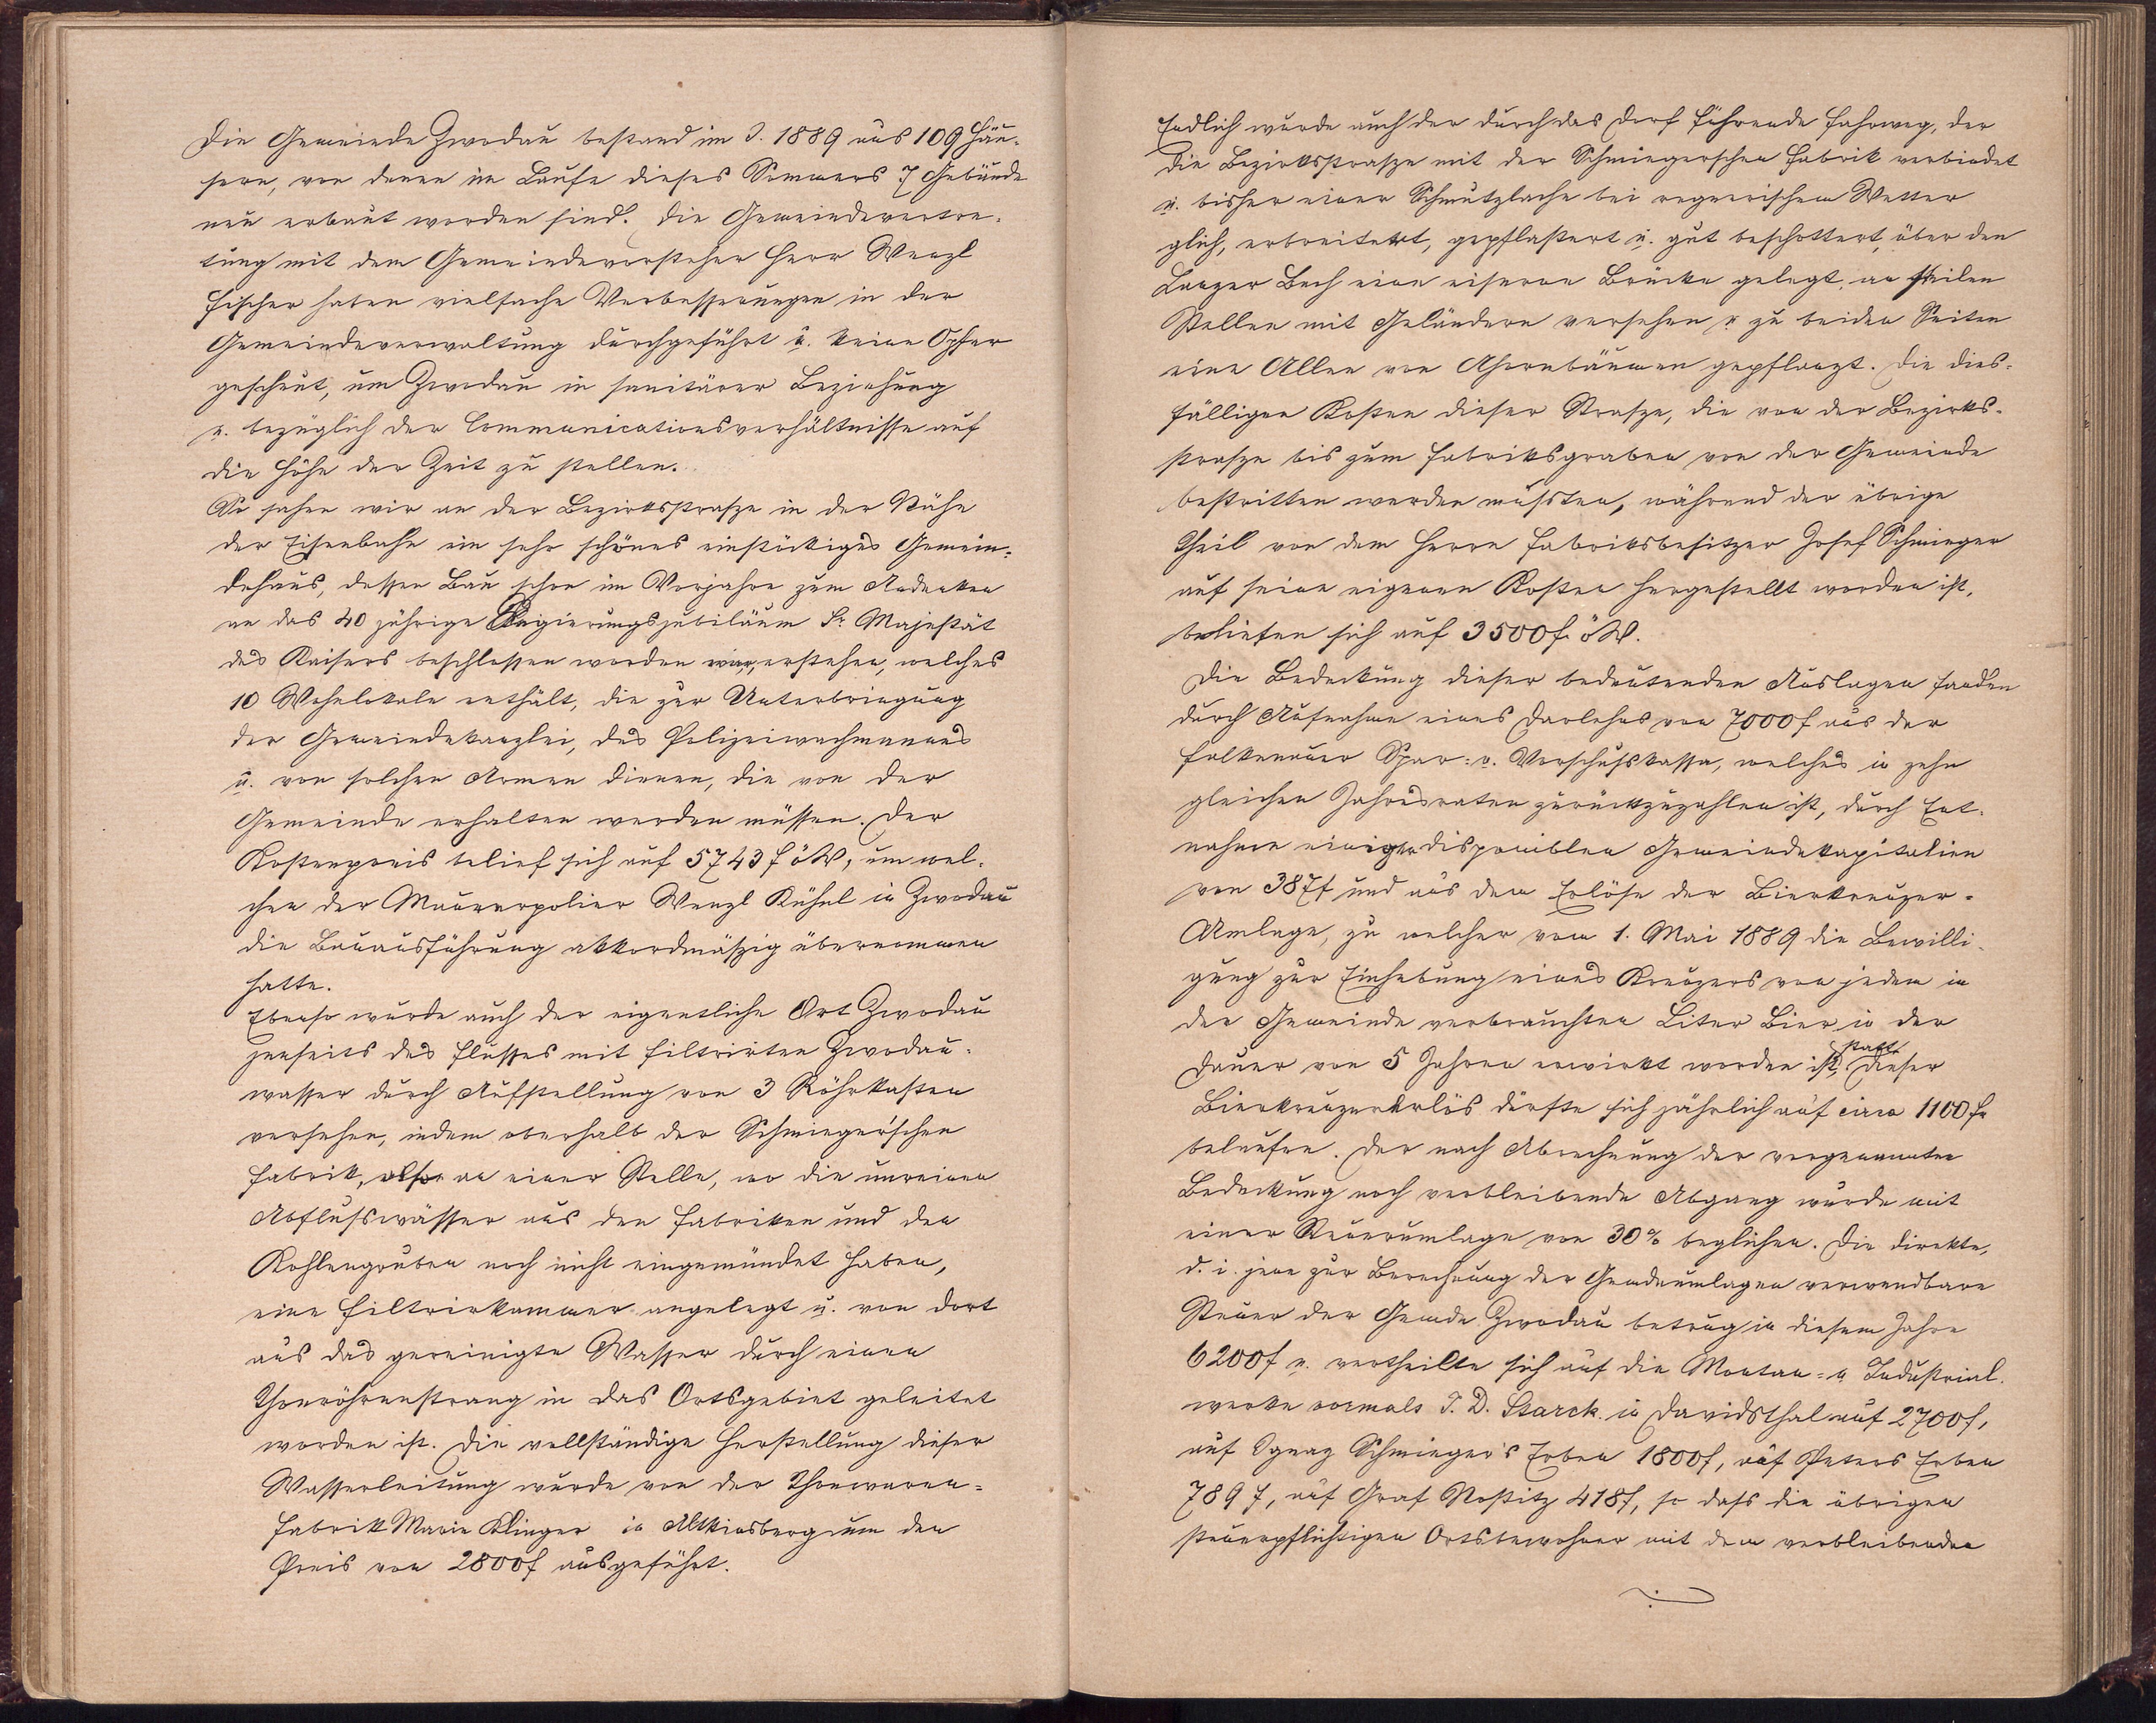 Die Gemeinde Zwodau bestand im J. 1889 aus 109 Häu-
sern, von denen im Laufe dieses Sommers 7 Gebäude
neu erbaut worden sind. Die Gemeindevertre-
tung mit dem Gemeindevorsteher Herr Wenzl
Fischer haben vielfache Verbesserungen in der
Gemeindeverwaltung durchgeführt u. keine Opfer
gescheut, um Zwodau in sanitärer Beziehung
u. bezüglich der Communicationsverhältnisse auf
die Höhe der Zeit zu stellen.
So sehen wir an der Bezirksstrasze in der Nähe
der Eisenbahn ein sehr schönes einstöckiges Gemein-
dehaus, dessen Bau schon im Vorjahre zum Andenken
an das 40 jährige Regierungsjubiläum Sr. Majestät
des Kaisers beschlossen worden war, erstehen, welches
10 Wohnlokale enthält, die zur Unterbringung
der Gemeindekanzlei, des Polizeiwachmannes
u. von solchen Armen dienen, die von der
Gemeinde erhalten werden müssen. Der
Kostenpreis belief sich auf 5743 f öW, um wel-
chen der Maurerpolier Wenzl Kühnl in Zwodau
die Bauausführung akkordmäszig übernommen
hatte.
Ebenso wurde auch der eigentliche Ort Zwodau
jenseits des Flusses mit filtrirten Zwodau-
wasser durch Aufstellung von 3 Röhrkasten
versehen, indem oberhalb der Schmieger'schen
Fabrik, also an einer Stelle, wo die unreinen
Abflusswässer aus den Fabriken und den
Kohlengruben noch nicht eingemündet haben,
eine Filtrirkammer angelegt u. von dort
aus das gereinigte Wasser durch einen
Thonröhrenstrang in das Ortsgebiet geleitet
worden ist. Die vollständige Herstellung dieser
Wasserleitung wurde von der Thonwaren-
fabrik Marie Klinger in Altkinsberg um den
Preis von 2800 f ausgeführt.
Endlich wurde auch der durch das Dorf führende Fahrweg, der
die Bezirksstrasze mit der Schmiegerschen Fabrik verbindet
u. bisher einer Schmutzlache bei regnerischem Wetter
glich, erbreitert, gepflastert u. gut beschottert, über den
Lanzer Bach eine eiserne Brücke gelegt, an steilen
Stellen mit Geländern versehen u zu beiden Seiten
eine Allee von Ahornbäumen gepflanzt. Die dies-
fälligen Kosten dieser Strasze, die von der Bezirks-
strasze bis zum Fabriksgraben von der Gemeinde
bestritten werden mussten, während der übrige
Theil von dem Herrn Fabriksbesitzer Josef Schmieger
auf seine eigenen Kosten hergestellt worden ist,
beliefen sich auf 3500 f. öW.
Die Bedeckung dieser bedeutenden Auslagen fanden
durch Aufnahme eines Darlehns von 7000 f aus der
Falkenauer Spar- u. Vorschusskassa, welches in zehn
gleichen Jahresraten zurückzuzahlen ist, durch Ent-
nahme einiger disponiblen Gemeindekapitalien
von 387 f und aus dem Erlöse der Bierkreuzer-
Umlage, zu welcher vom 1. Mai 1889 die Bewilli-
gung zur Einhebung eines Kreuzers von jedem in
der Gemeinde verbrauchten Liter Bier in der
Dauer von 5 Jahren erwirkt worden ist, statt. Dieser
Bierkreuzererlös dürfte sich jährlich auf circa 1100 fr
belaufen. Der nach Abrechnung der vorgenannten
Bedeckung noch verbleibende Abgang wurde mit
einer Steuerumlage von 30% beglichen. Die direkte,
d. i. jene zur Berechnung der Gemdeumlagen verwendbare
Steuer der Gemde Zwodau betrug in diesem Jahre
6200 f u. vertheilte sich auf die Montan- u Industrial-
werke vormals J. D. Starck in Davidsthal auf 2700 f,
auf Ignaz Schmieger's Erben 1800 f, auf Peters Erben
789 f, auf Graf Nostitz 418 f, so dass die übrigen
steuerpflichtigen Ortsbewohner mit dem verbleibenden